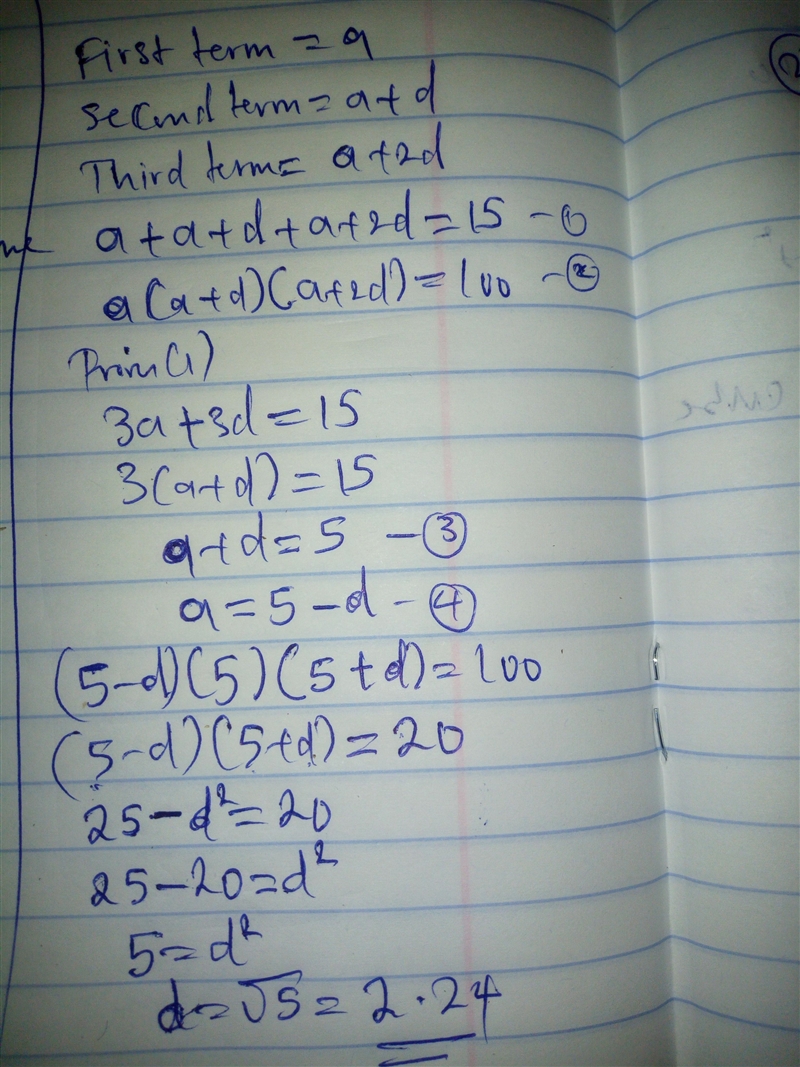 First term = a
Second term = a + d
Third term = a + 2d
a + a + d + a + 2d = 15 - ①
a(a+d)(a+2d) = 100 - ②
From (1)
3a + 3d = 15
3(a+d) = 15
a + d = 5 - ③
a = 5 - d - ④
(5-d)(5)(5+d) = 100
(5-d)(5+d) = 20
25 - d² = 20
25 - 20 = d²
5 = d²
d = √5 = 2.24